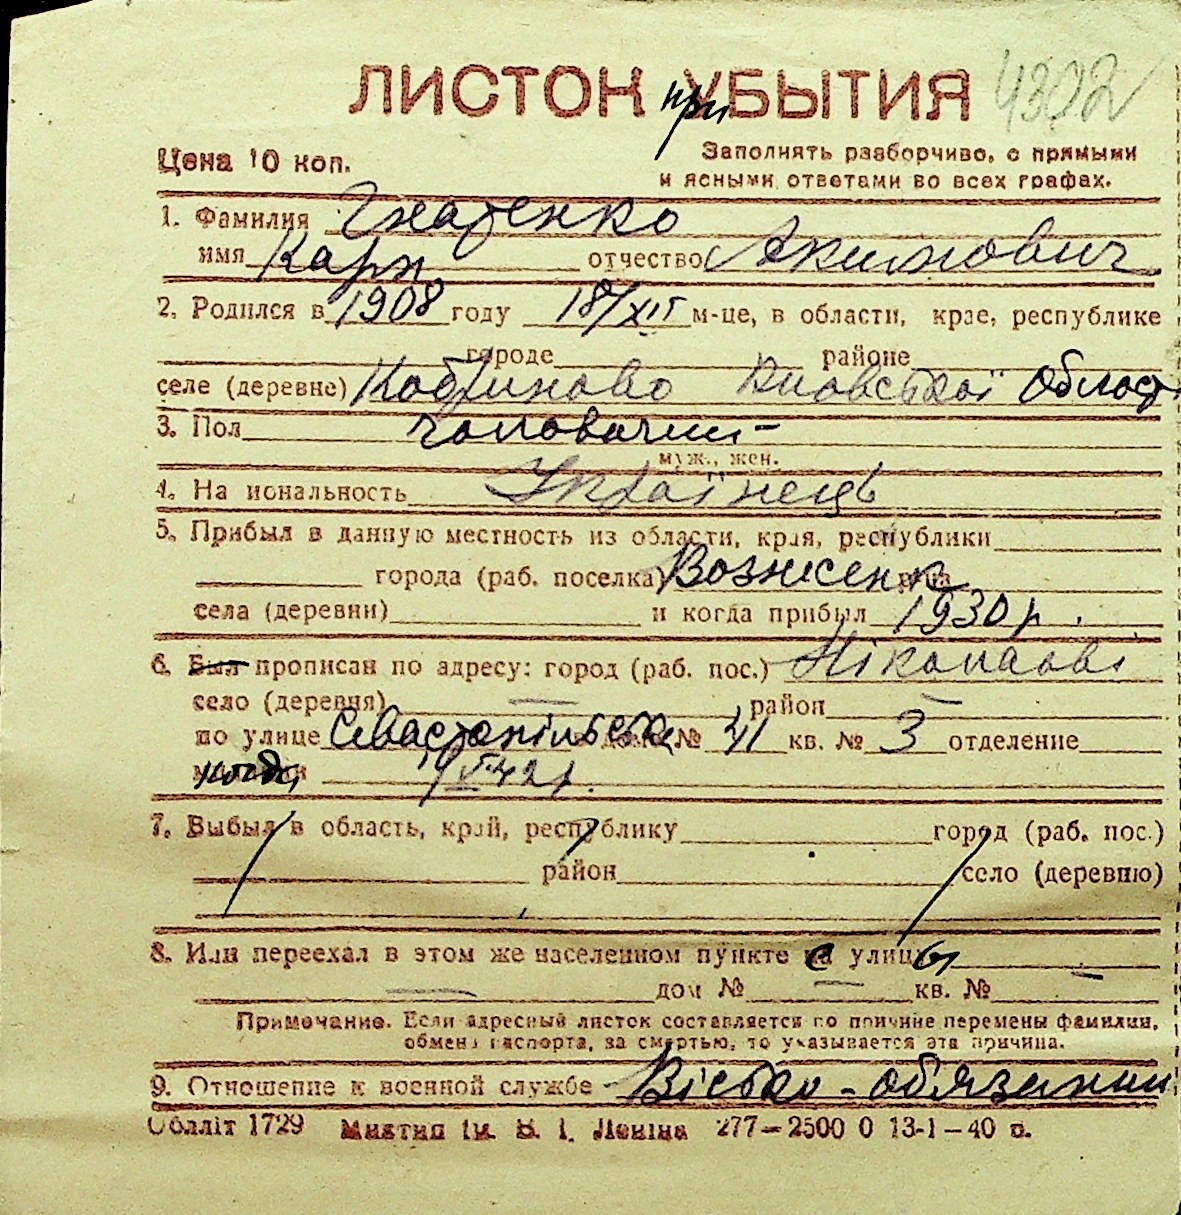 ЛИСТОК при УБЫТИЯ 4302
Цена 10 коп.
Заполнять разборчиво, с прямыми
и ясными ответами во всех графах.
1. Фамилия Гнатенко
имя Карп отчество Акимович
2. Родился в 1908 году 18/XII м-це, в области, крае, республике
городе районе
селе (деревне) Област
3. Пол чоловичий
муж., жен.
4. На иональность Українець
5. Прибыл в данную местность из области, края, республики
города (раб. поселка) Вознесенк
села (деревни) и когда прибыл 1930 р.
6. Был прописан по адресу: город (раб. пос.) Ніколаові
село (деревня) — район —
по улице Севастопільська дома № 41 кв. № 3 отделение
когда
7. Выбыл в область, край, республику город (раб. пос.)
район село (деревню)
8. Или переехал в этом же населенном пункте с улицы
дом № кв. №
Примечание. Если адресный листок составляется по причине перемены фамилии,
обмена паспорта, за смертью, то указывается эта причина.
9. Отношение к военной службе Вісько-обязаний
Облліт 1729 Миктип Ім. В. І. Леніна 277—2500 0 13-1—40 в.